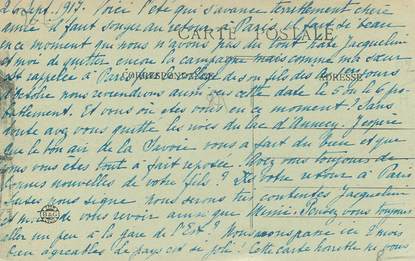 2 Sept. 1917. Voici l'été qui s'avance terriblement chère
amie il faut songer au retour à Paris. Il fait si beau
CARTE POSTALE
en ce moment que nous n'avons pas du tout hâte Jacqueline
et moi de quitter encore la campagne mais comme ma sœur
est rappelée à Paris de son fils des jours
CORRESPONDANCE
ADRESSE
nous reviendrons aussi vers cette date le 5 ou le 6
Et vous où êtes vous en ce moment? Sans
doute avez vous quitté les rives du lac d'Annecy. J'espère
que le bon air de la Savoie vous a fait du bien et que
vous êtes tout à fait reposée. Avez vous toujours de
bonnes nouvelles de votre fils? Dès votre retour à Paris
faites nous signe nous serons très contentes Jacqueline
et m. de vous revoir ainsi que Mémé. Pensez vous toujours
aller un peu à la gare de l'Est? Nous avons passé ici 2 mois
bien agréables le pays est si joli! Cette carte horrible ne vous